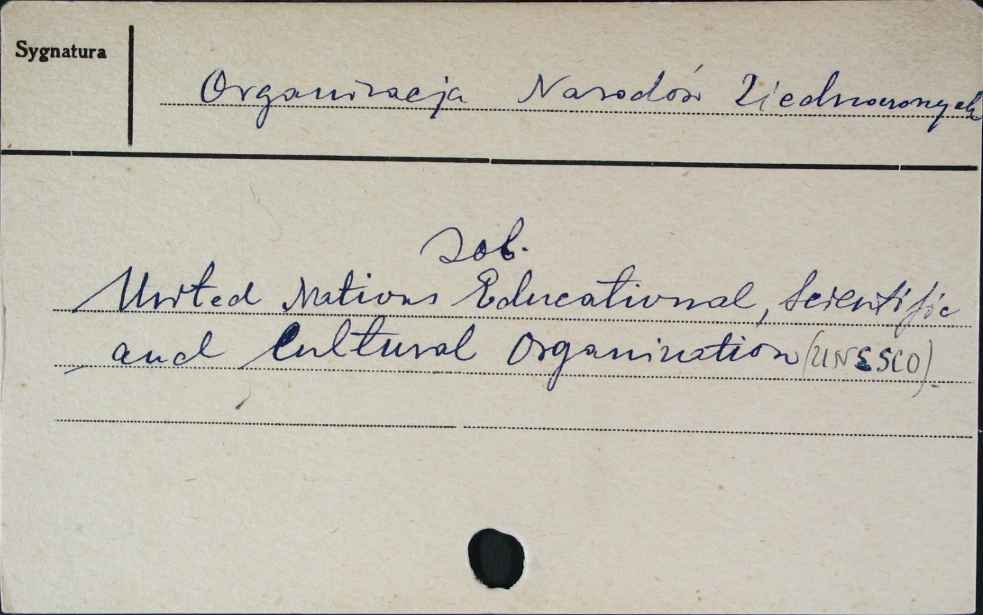 Sygnatura
Organizacja Narodów Zjednoczonych
zob.
United Nations Educational, Scientific
and Cultural Organization (UNESCO).